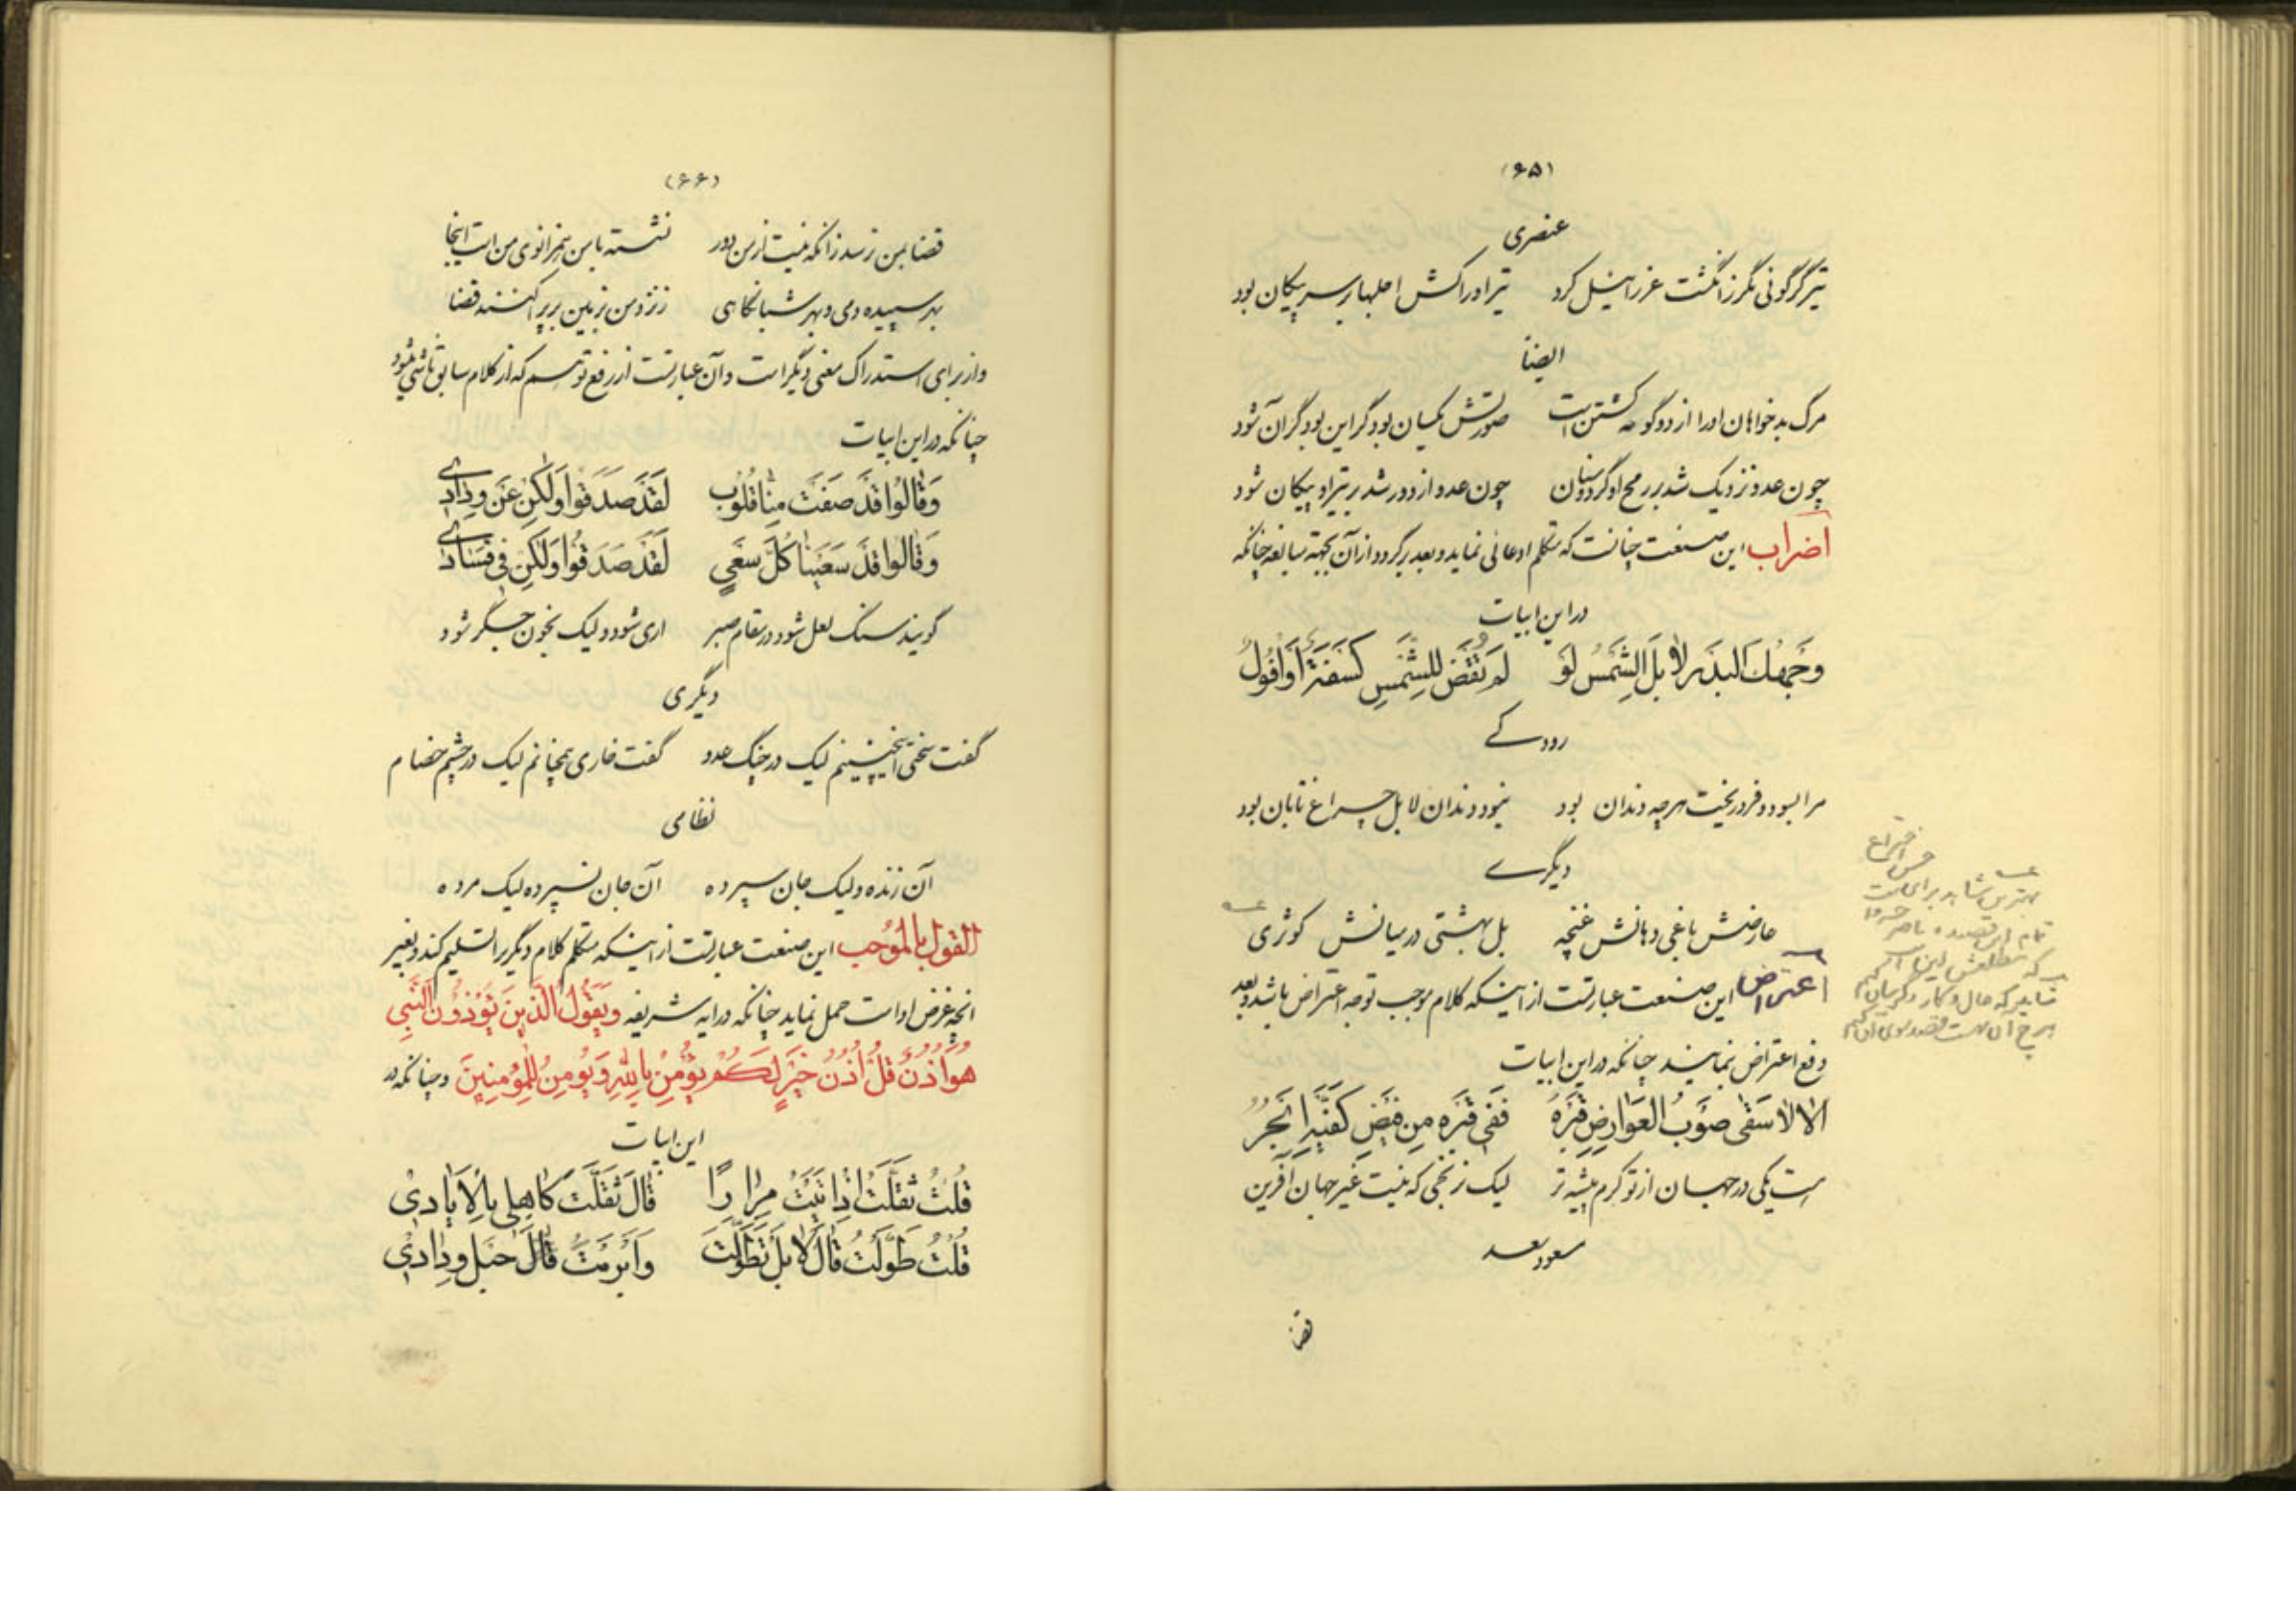 (۶۵)
عنصری
تیر گر گوئی مگر ز انگشت عزرائیل کرد تیر او را کش اجلها بر سر پیکان بود
ایضا
مرگ بدخواهان او را از دو گونه کشتن است صورتش یکسان بود گر این بود گر آن شود
چون عدو نزدیک شد بر رمح او گردد سنان چون عدو از دور شد بر تیر او پیکان شود
اضراب این صنعت چنانست که متکلم ادعائی نماید و بعد برگردد از آن بجهة مبالغه چنانکه
در این ابیات
وَجهُكَ البَدرُ لا بَلِ الشَّمسُ لَو لَم تُقضَ لِلشَّمسِ كَسفَةٌ اَو اُفُولُ
رودکے
مرا بسود و فرو ریخت هرچه دندان بود نبود دندان لا بل چراغ تابان بود
دیگرے
عارضش باغی دهانش غنچه بل بهشتی در میانش کوثری
اعتراض این صنعت عبارتست از اینکه کلام موجب توجه اعتراض باشد و بعد
دفع اعتراض نمایند چنانکه در این ابیات
اَلا لا سَقٰى صَوبُ العَوارِضِ قَبرَهُ فَفى قَبرِهِ مِن فَیضِ كَفَّیهِ اَبحُرٌ
است یکی در جهان از تو کرم پیشه تر لیک ز نخجی که نیست غیر جهان آفرین
مسعود سعد
قضا
حسن اختراع
بهترین شاهد برای
تمام این قصیده ناصر خسرو
که مطلعش اینست
شاید که حال و کار دگرسان کنم
هرچ آن بهست قصد سوی آن کنم
(۶۶)
قضا بمن نرسد زانکه نیست از من دور نشسته با من همزانوی من است اینجا
بهر سپیده دمی و بهر شبانگاهی ز نزد من بزمین بر پراکنند قضا
و از برای استدراک معنی دیگر است و آن عبارتست از رفع توهم که از کلام سابق ناشی میشود
چنانکه در این ابیات
وَقالُوا قَد صَفَت مِنّا قُلُوب لَقَد صَدَقُوا وَلٰكِن عَن وِدادی
وَقالُوا قَد سَعَینا كُلَّ سَعیٍ لَقَد صَدَقُوا وَلٰكِن فی فَسادی
گویند سنگ لعل شود در مقام صبر اری شود ولیک بخون جگر شود
دیگری
گفت سختی اینچنینم لیک در چنگ عدو گفت خاری همچنانم لیک در چشم خصام
نظامی
آن زنده ولیک جان سپرده آن جان نسپرده لیک مرده
القول بالموجب این صنعت عبارتست از اینکه متکلم کلام دیگر را تسلیم کند و بغیر
انچه غرض او است حمل نماید چنانکه در ایه شریفه وَیَقُولُ الَّذینَ یُؤذُونَ النَّبِی
هُوَ اُذُنٌ قُل اُذُنُ خَیرٍ لَكُم یُؤمِنُ بِاللّٰهِ وَیُؤمِنُ لِلمُؤمِنینَ و چنانکه در
این ابیات
قُلتُ ثَقَّلتُ اِذ اَتَیتُ مِرارًا قالَ ثَقَّلتَ كاهِلی بِالاَیادی
قُلتُ طَوَّلتُ قالَ لا بَل تَطَوَّلتَ وَاَبرَمتُ قالَ حَبلَ وِدادی